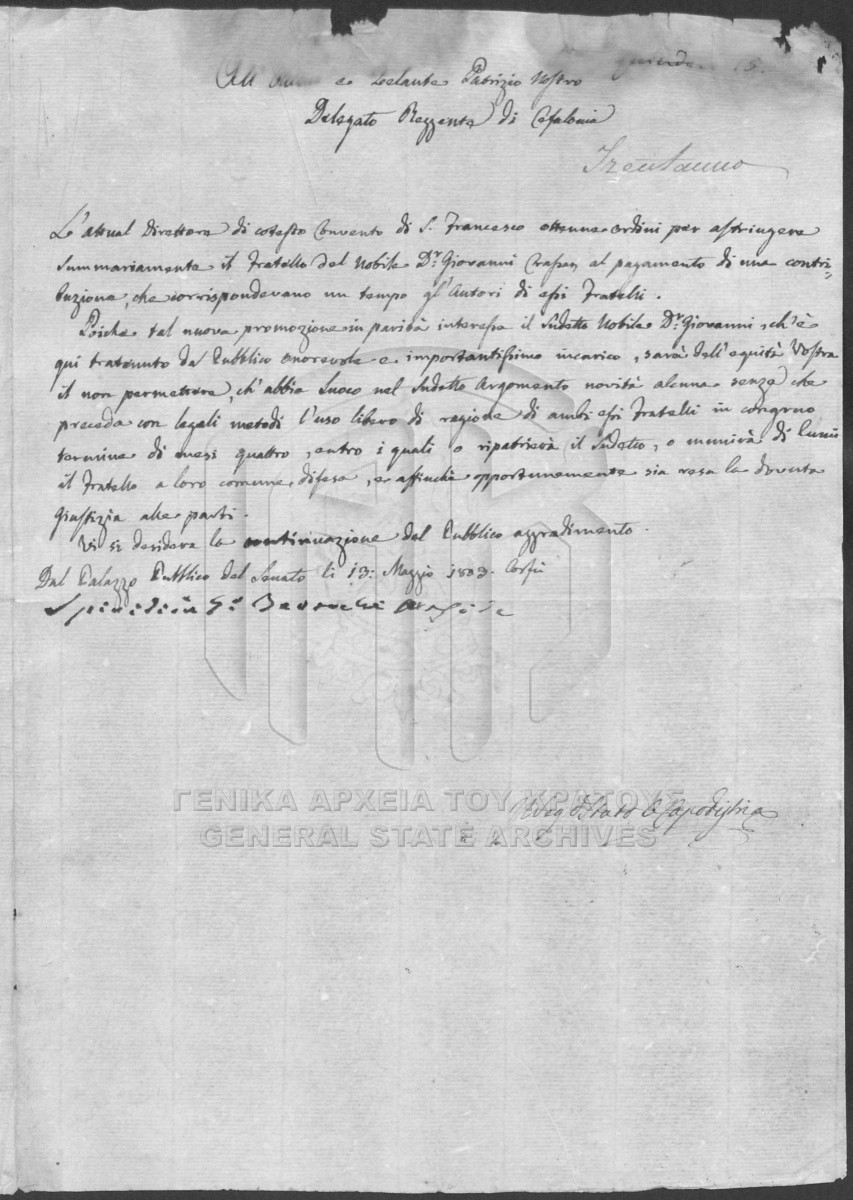 All' e Zelante Patrizio Nostro
Delegato Reggente di Cefalonia
L' attual Direttore di cotesto Convento di S. Francesco ottenne ordini per astringere
Summariamente il Fratello del Nobile Dr. Giovanni al pagamento di una contri-
buzione, che corrispondevano un tempo gl' Autori di essi Fratelli.
Poiche tal nuova promozione in parità interessa il Sudetto Nobile Dr. Giovanni, ch' è
qui trattenuto da Pubblico onorevole e importantissimo incarico, sarà dell' equità Vostra
il non permettere, ch' abbia luoco nel Sudetto Argomento novità alcuna senza che
preceda con legali metodi l' uso libero di ragione di ambi essi Fratelli in congruo
termine di mesi quattro, entro i quali o ripatrierà il Sudetto, o munirà di Lumi
il Fratello a loro comune difesa, e affinchè opportunemente sia resa la dovuta
Giustizia alle parti.
Vi si desidera la continuazione del Pubblico aggradimento.
Dal Palazzo Pubblico del Senato li 13: Maggio 1803. Corfù
Capodistria
ΓΕΝΙΚΑ ΑΡΧΕΙΑ ΤΟΥ ΚΡΑΤΟΥΣ
GENERAL STATE ARCHIVES